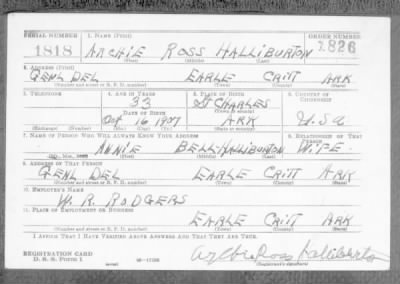 SERIAL NUMBER 1. NAME (Print) ORDER NUMBER
1818 ARCHIE ROSS HALLIBURTON 2,826
(First) (Middle) (Last)
2. ADDRESS (Print)
GENL DEL EARLE CRITT ARK
(Number and street or R. F. D. number) (Town) (County) (State)
3. TELEPHONE 4. AGE IN YEARS 5. PLACE OF BIRTH 6. COUNTRY OF CITIZENSHIP
33 St CHARLES
DATE OF BIRTH (Town or county)
Oct 16 1907 ARK U.S.A
(Exchange) (Number) (Mo.) (Day) (Yr.) (State or country)
7. NAME OF PERSON WHO WILL ALWAYS KNOW YOUR ADDRESS 8. RELATIONSHIP OF THAT PERSON
ANNIE BELL-HALLIBURTON WIFE
(Mr., Mrs., Miss) (First) (Middle) (Last)
9. ADDRESS OF THAT PERSON
GENL DEL EARLE CRITT ARK
(Number and street or R. F. D. number) (Town) (County) (State)
10. EMPLOYER'S NAME
W. R. RODGERS
11. PLACE OF EMPLOYMENT OR BUSINESS
EARLE CRITT ARK
(Number and street or R. F. D. number) (Town) (County) (State)
I AFFIRM THAT I HAVE VERIFIED ABOVE ANSWERS AND THAT THEY ARE TRUE.
REGISTRATION CARD Archie Ross Halliburton
D. S. S. FORM 1 (Registrant's signature)